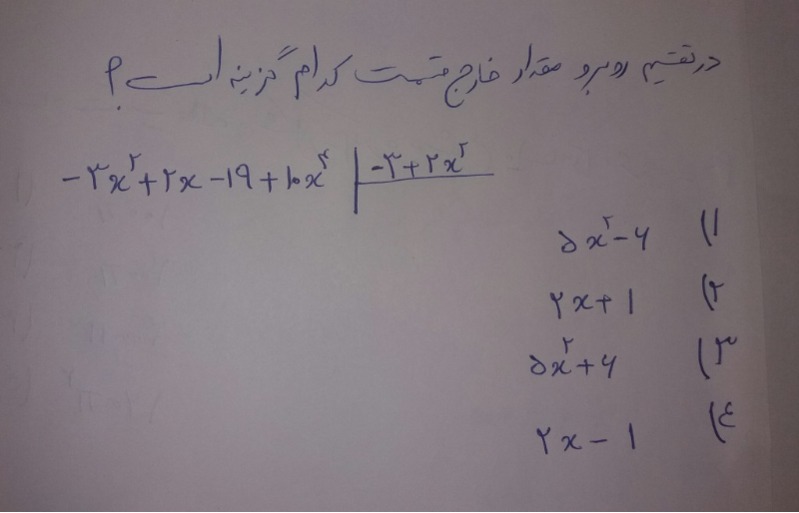 در تقسیم روبرو مقدار خارج قسمت کدام گزینه است؟
-۳x²+۲x-۱۹+۱۰x⁴ | -۳+۲x²
۱) ۵x²-۶
۲) ۲x+۱
۳) ۵x²+۶
٤) ۲x-۱